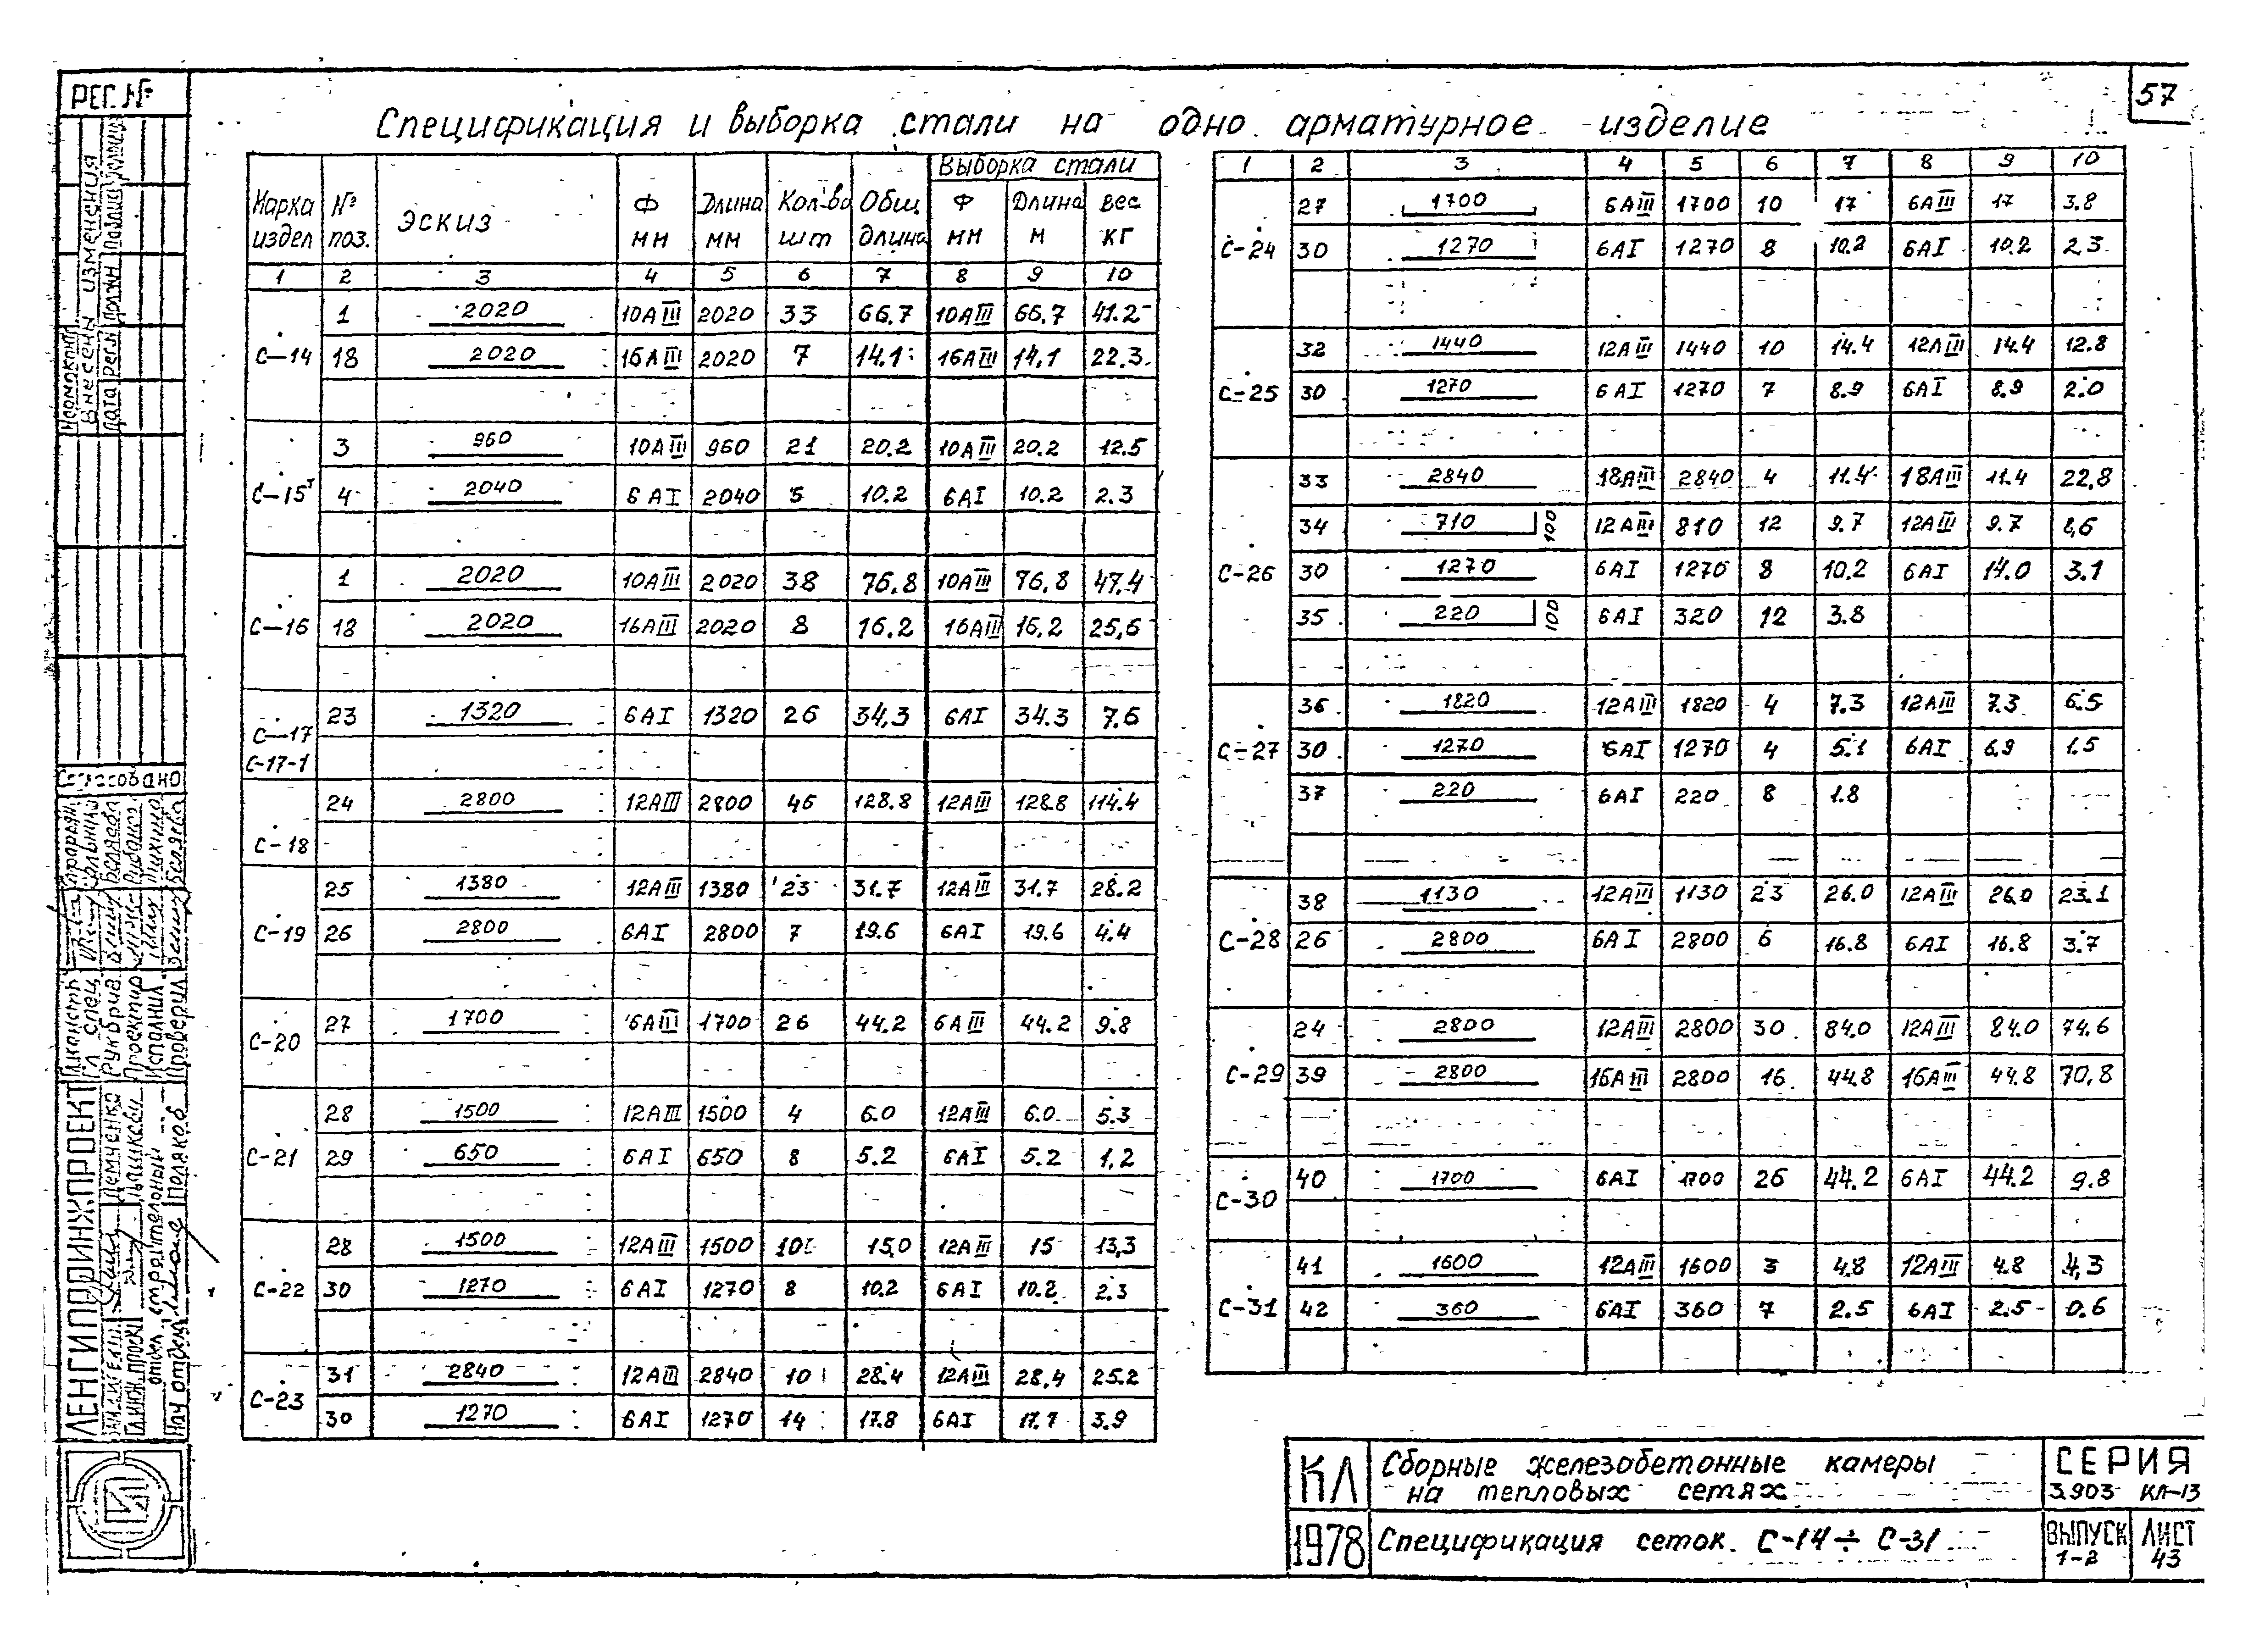 РЕГ. №
57
Спецификация и выборка стали на одно арматурное изделие
Марка издел | № поз. | Эскиз | Ф мм | Длина мм | Кол-во шт | Общ. длина | Выборка стали
Ф мм | Длина м | Вес кг
1 | 2 | 3 | 4 | 5 | 6 | 7 | 8 | 9 | 10
С-14 | 1 | 2020 | 10АIII | 2020 | 33 | 66.7 | 10АIII | 66.7 | 41.2
18 | 2020 | 16АIII | 2020 | 7 | 14.1 | 16АIII | 14,1 | 22.3
С-15т | 3 | 960 | 10АIII | 960 | 21 | 20.2 | 10АIII | 20.2 | 12.5
4 | 2040 | 6АI | 2040 | 5 | 10.2 | 6АI | 10.2 | 2.3
С-16 | 1 | 2020 | 10АIII | 2020 | 38 | 76.8 | 10АIII | 76,8 | 47.4
18 | 2020 | 16АIII | 2020 | 8 | 16.2 | 16АIII | 16,2 | 25,6
С-17 С-17-1 | 23 | 1320 | 6АI | 1320 | 26 | 34,3 | 6АI | 34.3 | 7.6
С-18 | 24 | 2800 | 12АIII | 2800 | 46 | 128.8 | 12АIII | 128.8 | 114.4
С-19 | 25 | 1380 | 12АIII | 1380 | 23 | 31.7 | 12АIII | 31.7 | 28.2
26 | 2800 | 6АI | 2800 | 7 | 19.6 | 6АI | 19.6 | 4.4
С-20 | 27 | 1700 | 6АIII | 1700 | 26 | 44.2 | 6АIII | 44.2 | 9.8
С-21 | 28 | 1500 | 12АIII | 1500 | 4 | 6.0 | 12АIII | 6.0 | 5.3
29 | 650 | 6АI | 650 | 8 | 5.2 | 6АI | 5.2 | 1,2
С-22 | 28 | 1500 | 12АIII | 1500 | 10 | 15,0 | 12АIII | 15 | 13,3
30 | 1270 | 6АI | 1270 | 8 | 10.2 | 6АI | 10.2 | 2.3
С-23 | 31 | 2840 | 12АIII | 2840 | 10 | 28.4 | 12АIII | 28.4 | 25.2
30 | 1270 | 6АI | 1270 | 14 | 17.8 | 6АI | 17.7 | 3.9
1 | 2 | 3 | 4 | 5 | 6 | 7 | 8 | 9 | 10
С-24 | 27 | 1700 | 6АIII | 1700 | 10 | 17 | 6АIII | 17 | 3.8
30 | 1270 | 6АI | 1270 | 8 | 10.2 | 6АI | 10.2 | 2.3
С-25 | 32 | 1440 | 12АIII | 1440 | 10 | 14.4 | 12АIII | 14.4 | 12.8
30 | 1270 | 6АI | 1270 | 7 | 8.9 | 6АI | 8.9 | 2.0
С-26 | 33 | 2840 | 18АIII | 2840 | 4 | 11.4 | 18АIII | 11.4 | 22,8
34 | 710 100 | 12АIII | 810 | 12 | 9.7 | 12АIII | 9.7 | 8,6
30 | 1270 | 6АI | 1270 | 8 | 10.2 | 6АI | 14.0 | 3.1
35 | 220 100 | 6АI | 320 | 12 | 3.8
С-27 | 36 | 1820 | 12АIII | 1820 | 4 | 7.3 | 12АIII | 7.3 | 6.5
30 | 1270 | 6АI | 1270 | 4 | 5.1 | 6АI | 6,9 | 1.5
37 | 220 | 6АI | 220 | 8 | 1.8
С-28 | 38 | 1130 | 12АIII | 1130 | 23 | 26.0 | 12АIII | 26.0 | 23.1
26 | 2800 | 6АI | 2800 | 6 | 16.8 | 6АI | 16.8 | 3.7
С-29 | 24 | 2800 | 12АIII | 2800 | 30 | 84.0 | 12АIII | 84.0 | 74.6
39 | 2800 | 16АIII | 2800 | 16 | 44.8 | 16АIII | 44.8 | 70,8
С-30 | 40 | 1700 | 6АI | 1700 | 26 | 44.2 | 6АI | 44.2 | 9.8
С-31 | 41 | 1600 | 12АIII | 1600 | 3 | 4.8 | 12АIII | 4.8 | 4,3
42 | 360 | 6АI | 360 | 7 | 2.5 | 6АI | 2.5 | 0.6
Внесены изменения
Согласовано
Гл. спец.
Рук. брига.
Проектир.
Исполнил
Проверил
Беляева
ЛЕНГИПРОИНЖПРОЕКТ
Демченко
Поляков
Нач отдела
КЛ
Сборные железобетонные камеры
на тепловых сетях
СЕРИЯ
3.903 КЛ-13
1978
Спецификация сеток. С-14 ÷ С-31
ВЫПУСК
1-2
ЛИСТ
43